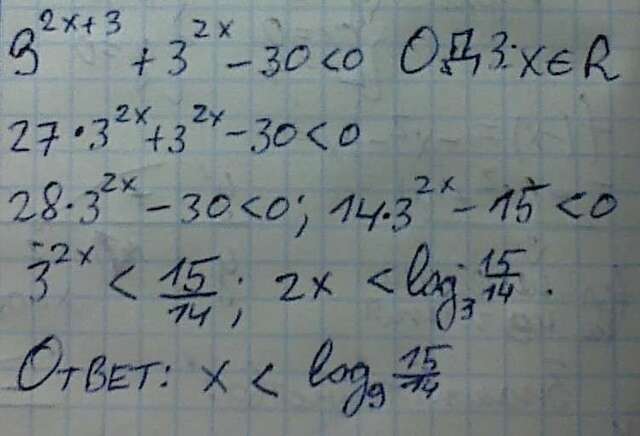 3^{2x+3} + 3^{2x} - 30 < 0 ОДЗ: x ∈ R
27 · 3^{2x} + 3^{2x} - 30 < 0
28 · 3^{2x} - 30 < 0; 14 · 3^{2x} - 15 < 0
3^{2x} < 15/14; 2x < log_3 15/14.
Ответ: x < log_9 15/14